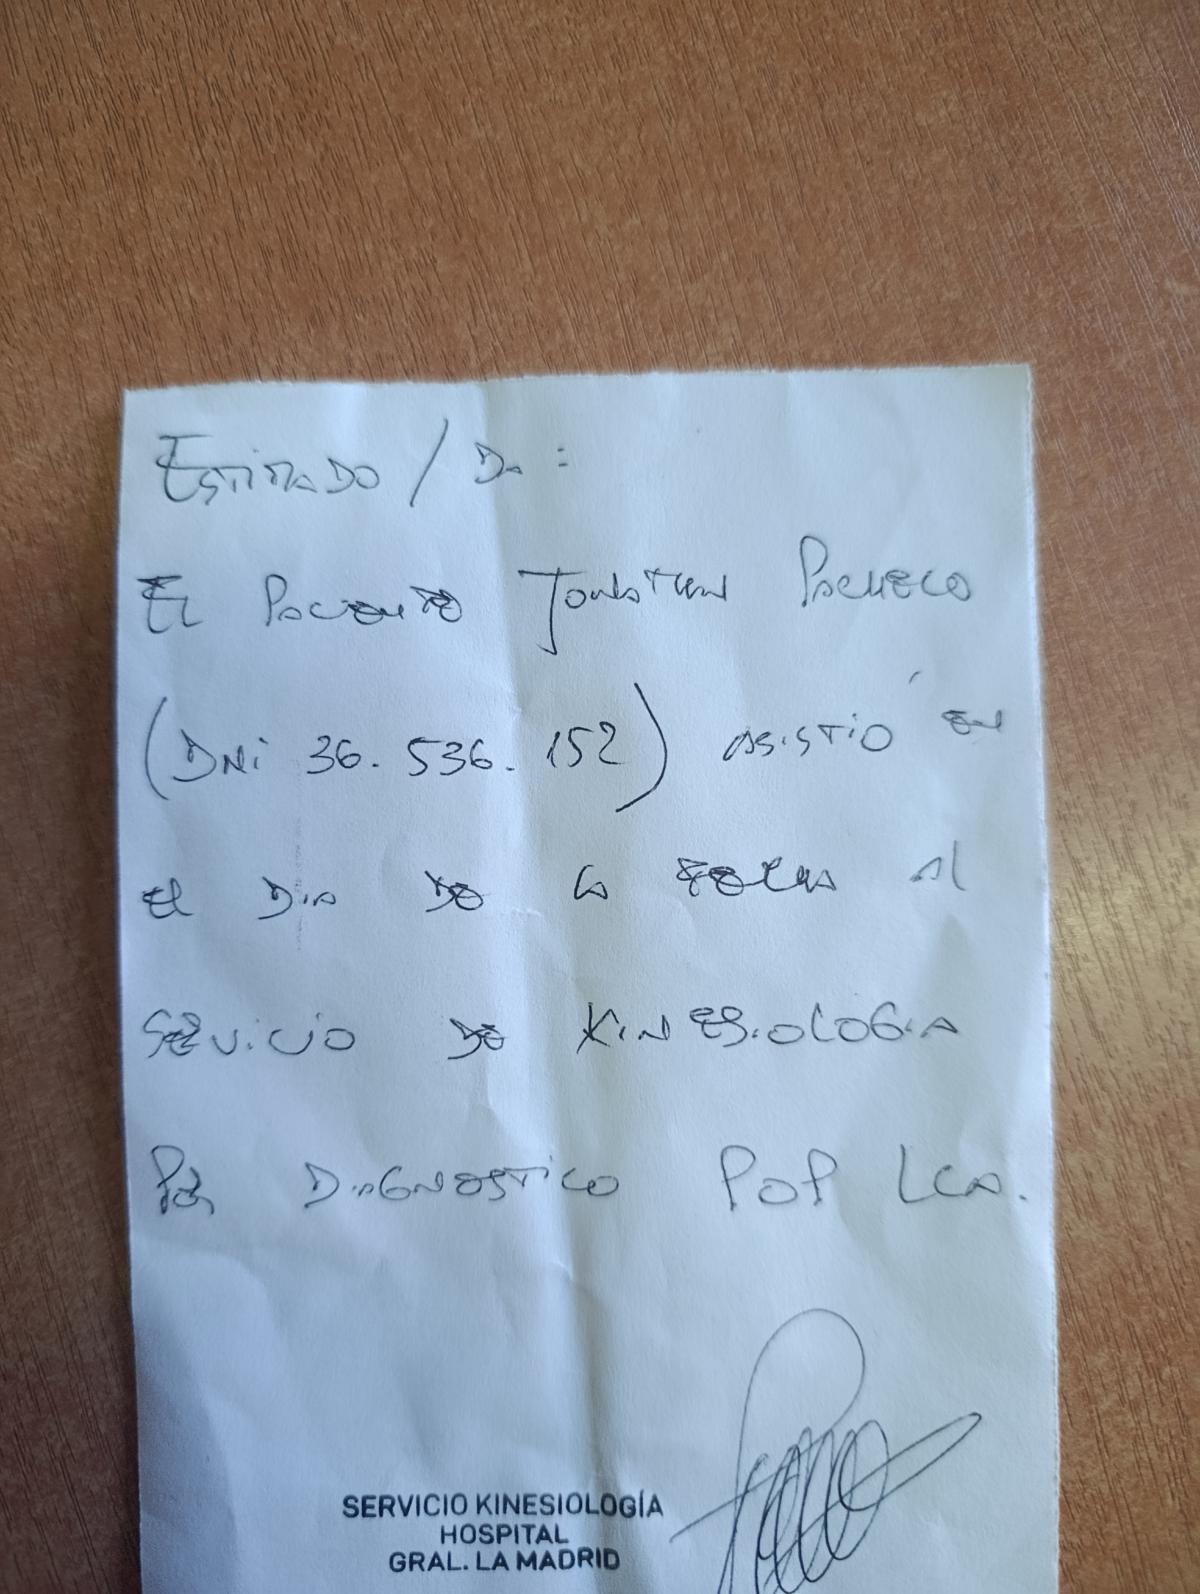 Estimado / Da :
El Paciente Jonathan Pacheco
(DNI 36.536.152) asistió en
el Dia de la fecha al
Servicio de Kinesiologia
Por Diagnostico POP LCA.
SERVICIO KINESIOLOGÍA
HOSPITAL
GRAL. LA MADRID